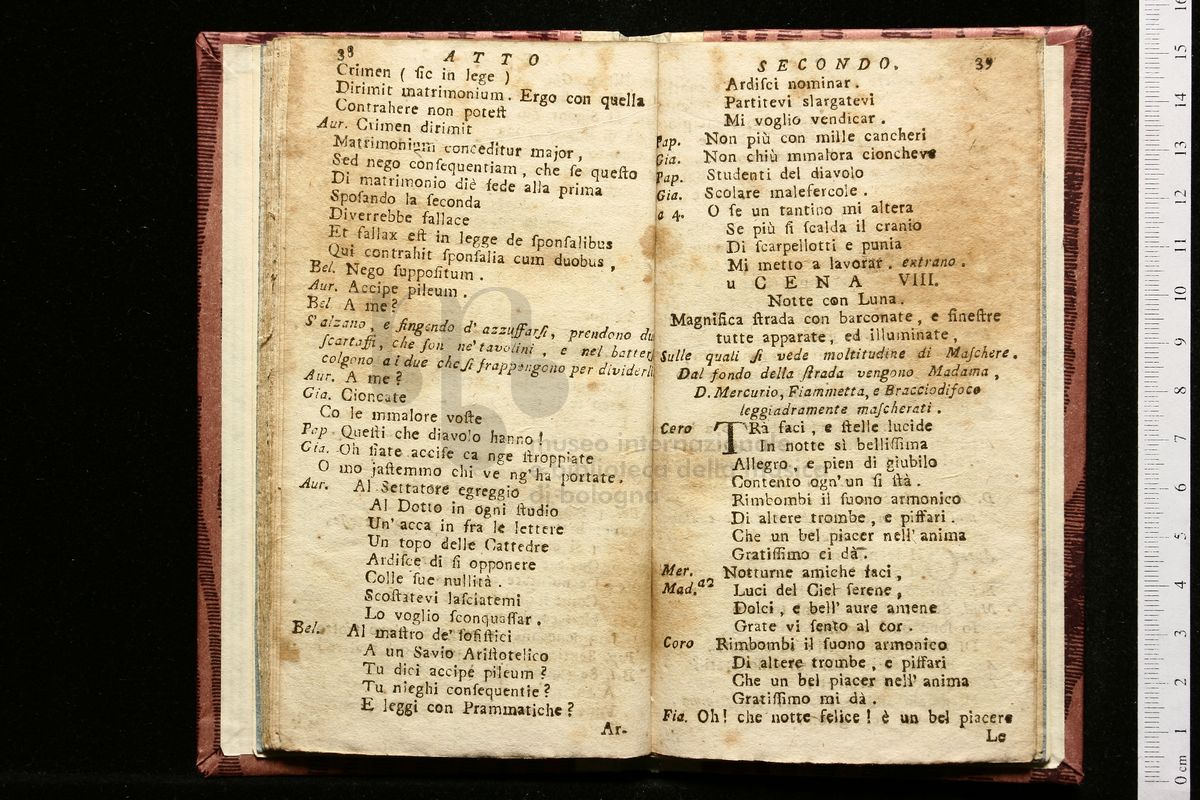 38 ATTO
Crimen ( ſic in lege )
Dirimit matrimonium. Ergo con quella
Contrahere non poteſt
Aur. Crimen dirimit
Matrimonium conceditur major,
Sed nego conſequentiam, che ſe queſto
Di matrimonio diè fede alla prima
Spoſando la ſeconda
Diverrebbe fallace
Et fallax eſt in legge de ſponſalibus
Qui contrahit ſponſalia cum duobus,
Bel. Nego ſuppoſitum.
Aur. Accipe pileum.
Bel A me?
S'alzano, e fingendo d'azzuffarſi, prendono du
ſcartaffi, che ſon ne' tavolini, e nel batterſ
colgono ai due che ſi frappongono per dividerli
Aur. A me?
Gia. Cioncate
Co le mmalore voſte
Pap Queſti che diavolo hanno!
Gia. Oh ſiate acciſe ca nge ſtroppiate
O mo jaſtemmo chi ve ng'ha portate.
Aur. Al Settatore egreggio
Al Dotto in ogni ſtudio
Un' acca in fra le lettere
Un topo delle Cattedre
Ardiſce di ſi opponere
Colle ſue nullità.
Scoſtatevi laſciatemi
Lo voglio ſconquaſſar.
Bel. Al maſtro de' ſofiſtici
A un Savio Ariſtotelico
Tu dici accipé pileum?
Tu nieghi conſequentie?
E leggi con Prammatiche?
Ar-
SECONDO. 39
Ardiſci nominar.
Partitevi slargatevi
Mi voglio vendicar.
Pap. Non più con mille cancheri
Gia. Non chiù mmalora cioncheve
Pap. Studenti del diavolo
Gia. Scolare malefercole.
a 4. O ſe un tantino mi altera
Se più ſi ſcalda il cranio
Di ſcarpellotti e punia
Mi metto a lavorar. extrano.
u CENA VIII.
Notte con Luna.
Magnifica ſtrada con barconate, e fineſtre
tutte apparate, ed illuminate,
Sulle quali ſi vede moltitudine di Maſchere.
Dal fondo della ſtrada vengono Madama,
D. Mercurio, Fiammetta, e Bracciodifoco
leggiadramente maſcherati.
Cero TRa faci, e ſtelle lucide
In notte sì belliſſima
Allegro, e pien di giubilo
Contento ogn' un ſi ſtà.
Rimbombi il ſuono armonico
Di altere trombe, e piffari.
Che un bel piacer nell' anima
Gratiſſimo ci dà.
Mer. Notturne amiche faci,
Mad. a2 Luci del Ciel ſerene,
Dolci, e bell' aure amene
Grate vi ſento al cor.
Coro Rimbombi il ſuono armonico
Di altere trombe, e piffari
Che un bel piacer nell' anima
Gratiſſimo mi dà.
Fia. Oh! che notte felice! è un bel piacere
Le
museo internazionale
e biblioteca della musica
di bologna
0 cm 1 2 3 4 5 6 7 8 9 10 11 12 13 14 15 16